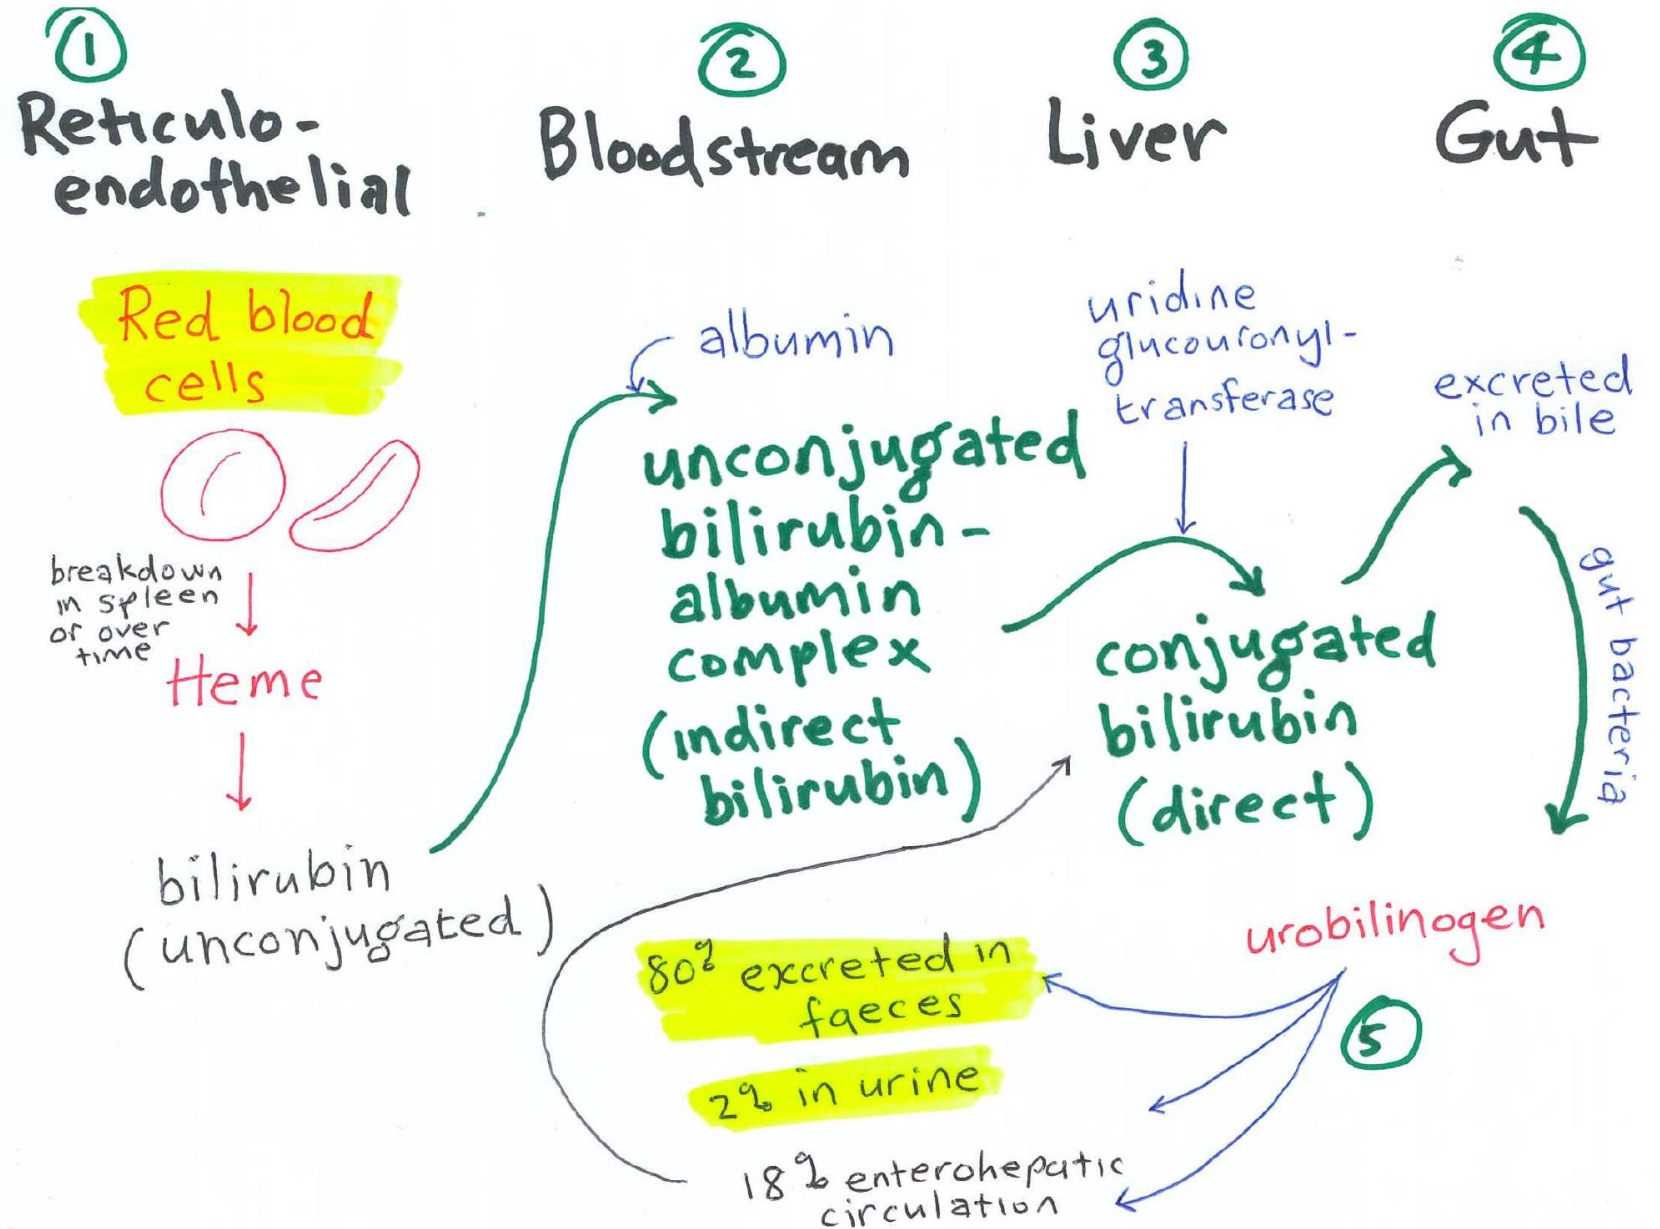 1
Reticulo-
endothelial
Red blood
cells
breakdown
in spleen
or over
time
Heme
bilirubin
(unconjugated)
2
Bloodstream
albumin
unconjugated
bilirubin-
albumin
complex
(indirect
bilirubin)
3
Liver
uridine
glucouronyl-
transferase
conjugated
bilirubin
(direct)
4
Gut
excreted
in bile
gut bacteria
urobilinogen
5
80% excreted in
faeces
2% in urine
18% enterohepatic
circulation